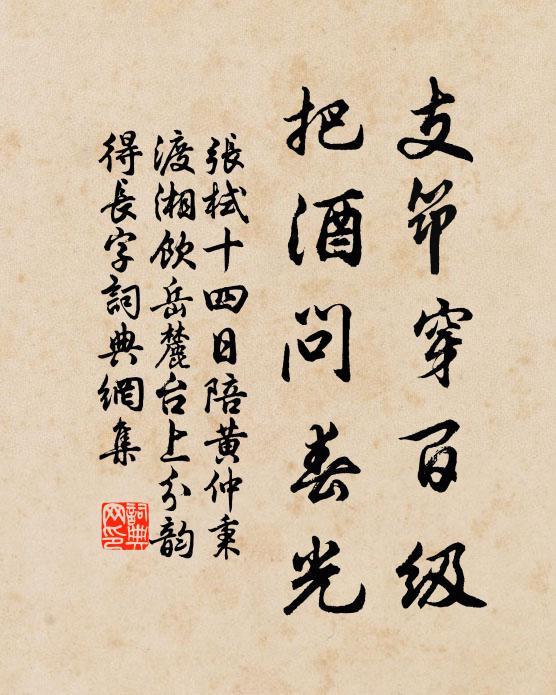 支筇穿百級
把酒問春光
張栻十四日陪黃仲秉
渡湘飲岳麓台上分韻
得長字詞典網集
詞典
网印